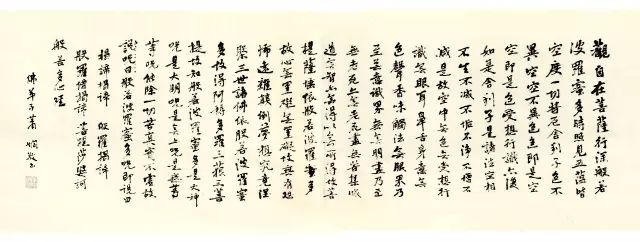 觀自在菩薩行深般若
波羅蜜多時照見五蕴皆
空度一切苦厄舍利子色不
異空空不異色色即是空
空即是色受想行識亦復
如是舍利子是諸法空相
不生不滅不垢不淨不增不
減是故空中無色無受想行
識無眼耳鼻舌身意無
色聲香味觸法無眼界乃
至無意識界無無明盡乃至
無老死亦無老死盡無苦集滅
道無智亦無得以無所得故菩
提薩埵依般若波羅蜜多
故心無罣礙無罣礙故無有恐
怖遠離顛倒夢想究竟涅
槃三世諸佛依般若波羅蜜
多故得阿耨多羅三藐三菩
提故知般若波羅蜜多是大神
咒是大明咒是無上咒是無等
等咒能除一切苦真實不虛故
說咒曰般若波羅蜜多咒即說曰
揭諦揭諦 般羅揭諦
般羅僧揭諦 菩提莎婆訶
般若多心經
佛弟子蕭嫻敬書